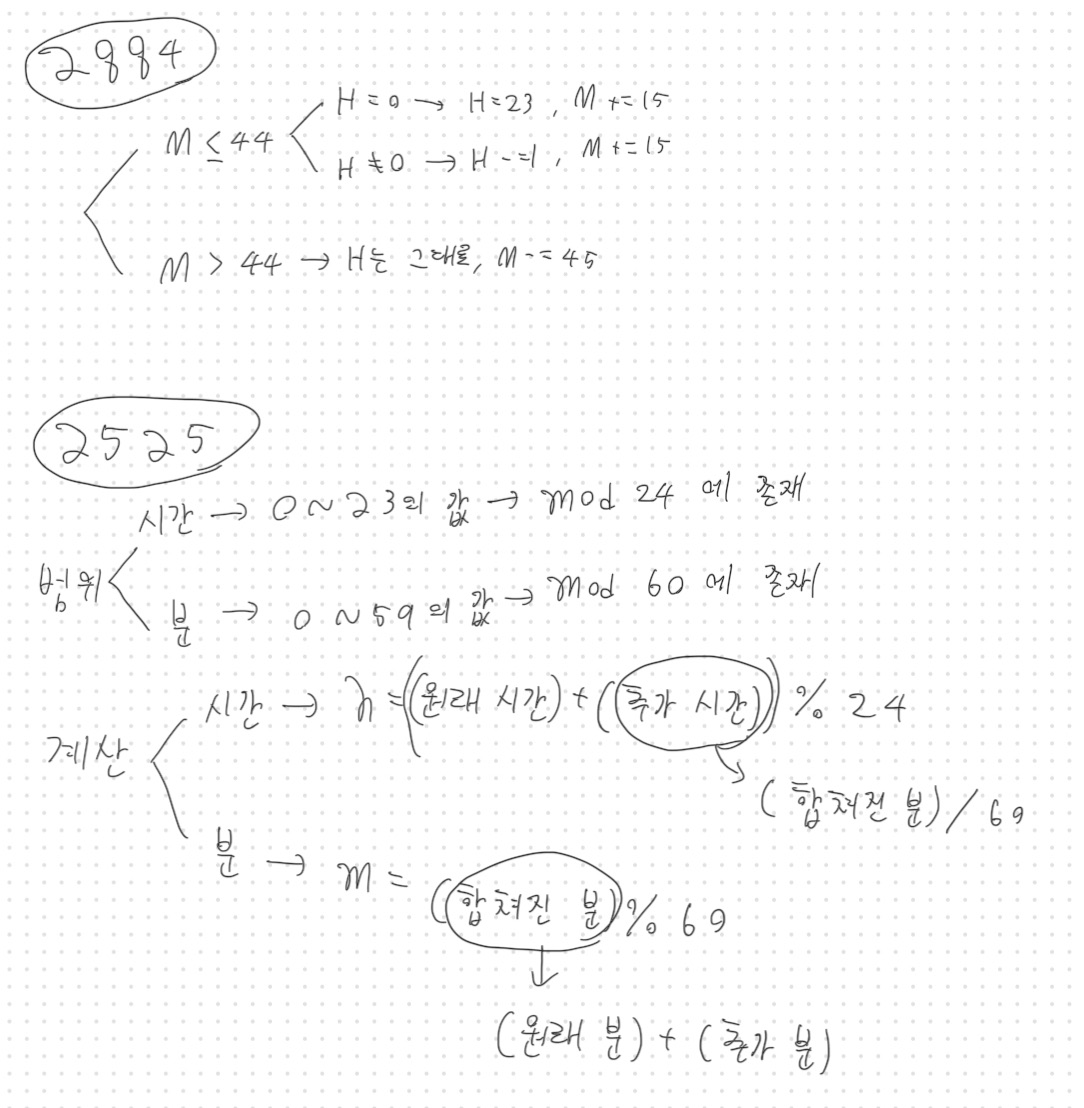 2884
M ≤ 44
H = 0 → H=23, M += 15
H ≠ 0 → H -=1, M += 15
M > 44 → H는 그대로, M -= 45
2525
범위
시간 → 0 ~ 23의 값 → mod 24 에 존재
분 → 0 ~ 59의 값 → mod 60 에 존재
계산
시간 → h = ((원래 시간) + (추가 시간)) % 24
(합쳐진 분) / 60
분 → m = (합쳐진 분) % 60
(원래 분) + (추가 분)